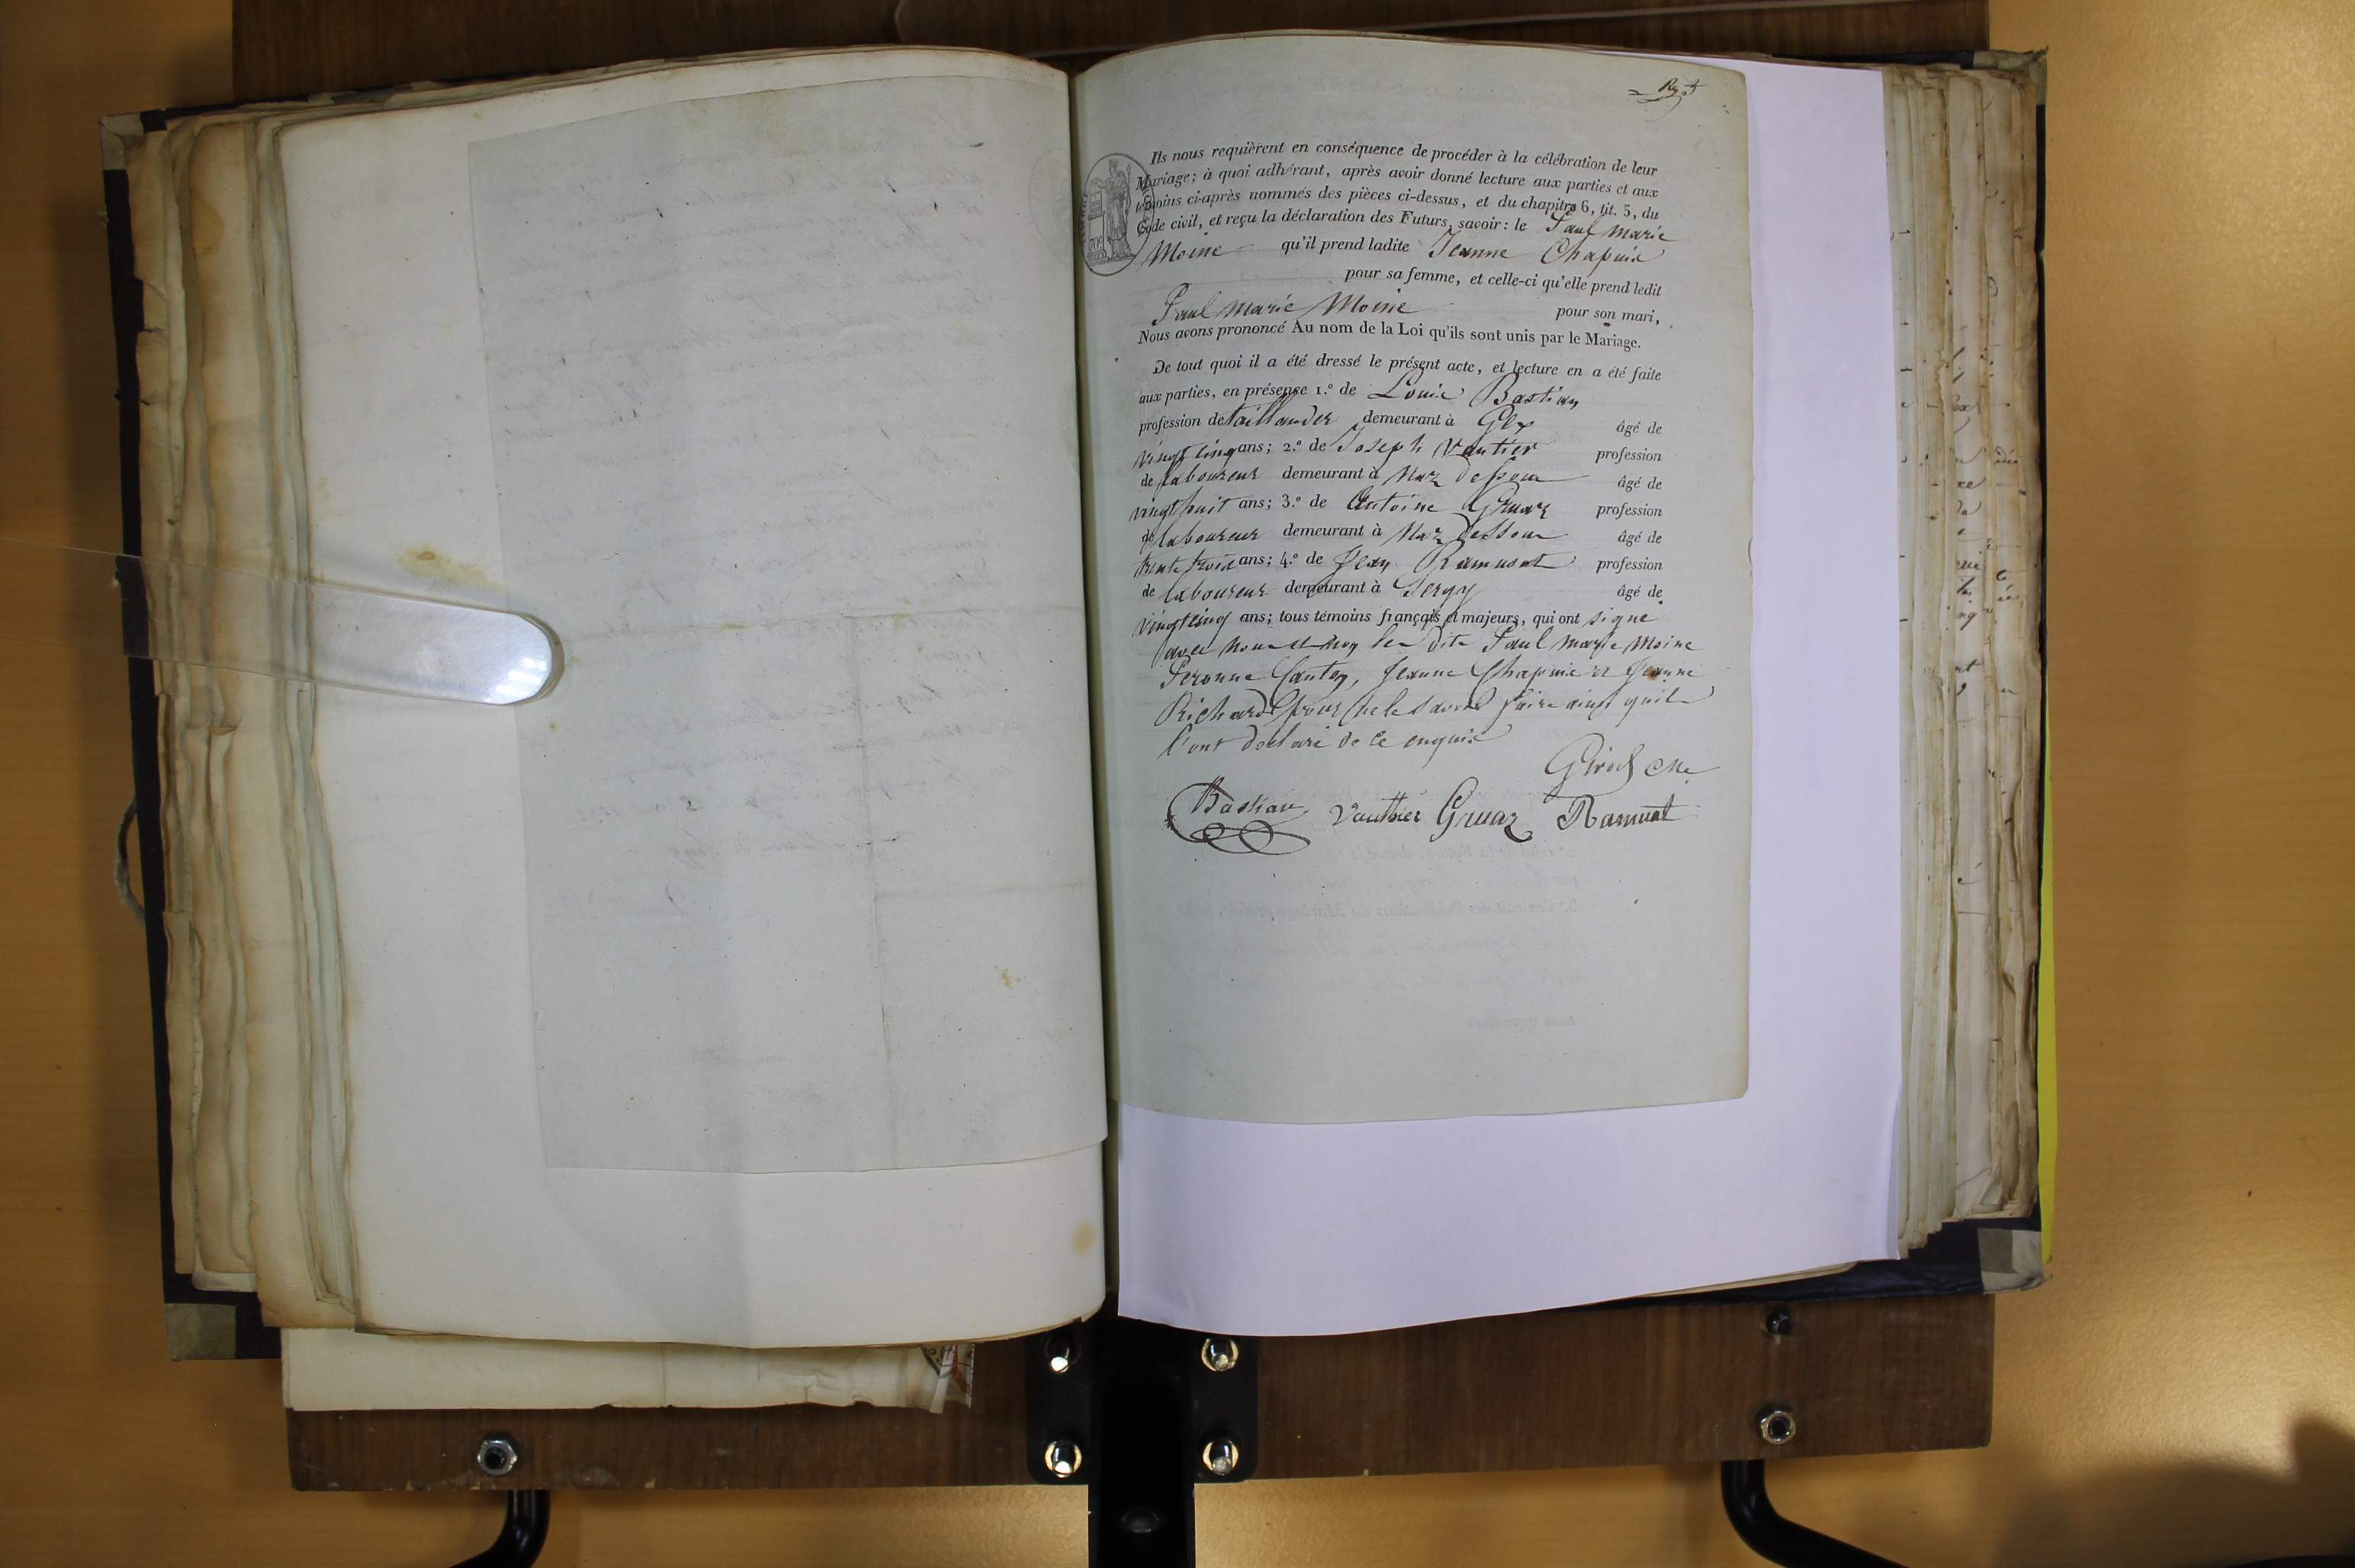 Ils nous requièrent en conséquence de procéder à la célébration de leur
Mariage; à quoi adhérant, après avoir donné lecture aux parties et aux
témoins ci-après nommés des pièces ci-dessus, et du chapitre 6, tit. 5, du
Code civil, et reçu la déclaration des Futurs, savoir: le Paul marie
Moine qu'il prend ladite Jeanne Chapuis
pour sa femme, et celle-ci qu'elle prend ledit
Paul Marie Moine pour son mari,
Nous avons prononcé Au nom de la Loi qu'ils sont unis par le Mariage.
De tout quoi il a été dressé le présent acte, et lecture en a été faite
aux parties, en présence 1.º de Louis Bastian
profession de taillander demeurant à Gex âgé de
vingt cinq ans; 2.º de Joseph Vautier profession
de laboureur demeurant à Naz dessous âgé de
vingt huit ans; 3.º de Antoine Gruaz profession
de laboureur demeurant à Naz dessous âgé de
trente trois ans; 4.º de Jean Ramuat profession
de laboureur demeurant à Sergy âgé de
vingt cinq ans; tous témoins français et majeurs, qui ont signé
avec nous et non les dits Paul marie Moine
Peronne Jeanne Chapuis et Jeanne
Richard pour ne le savoir faire ainsi quils
l'ont declaré de ce enquis
Girod
Bastian Vauthier Gruaz Ramuat